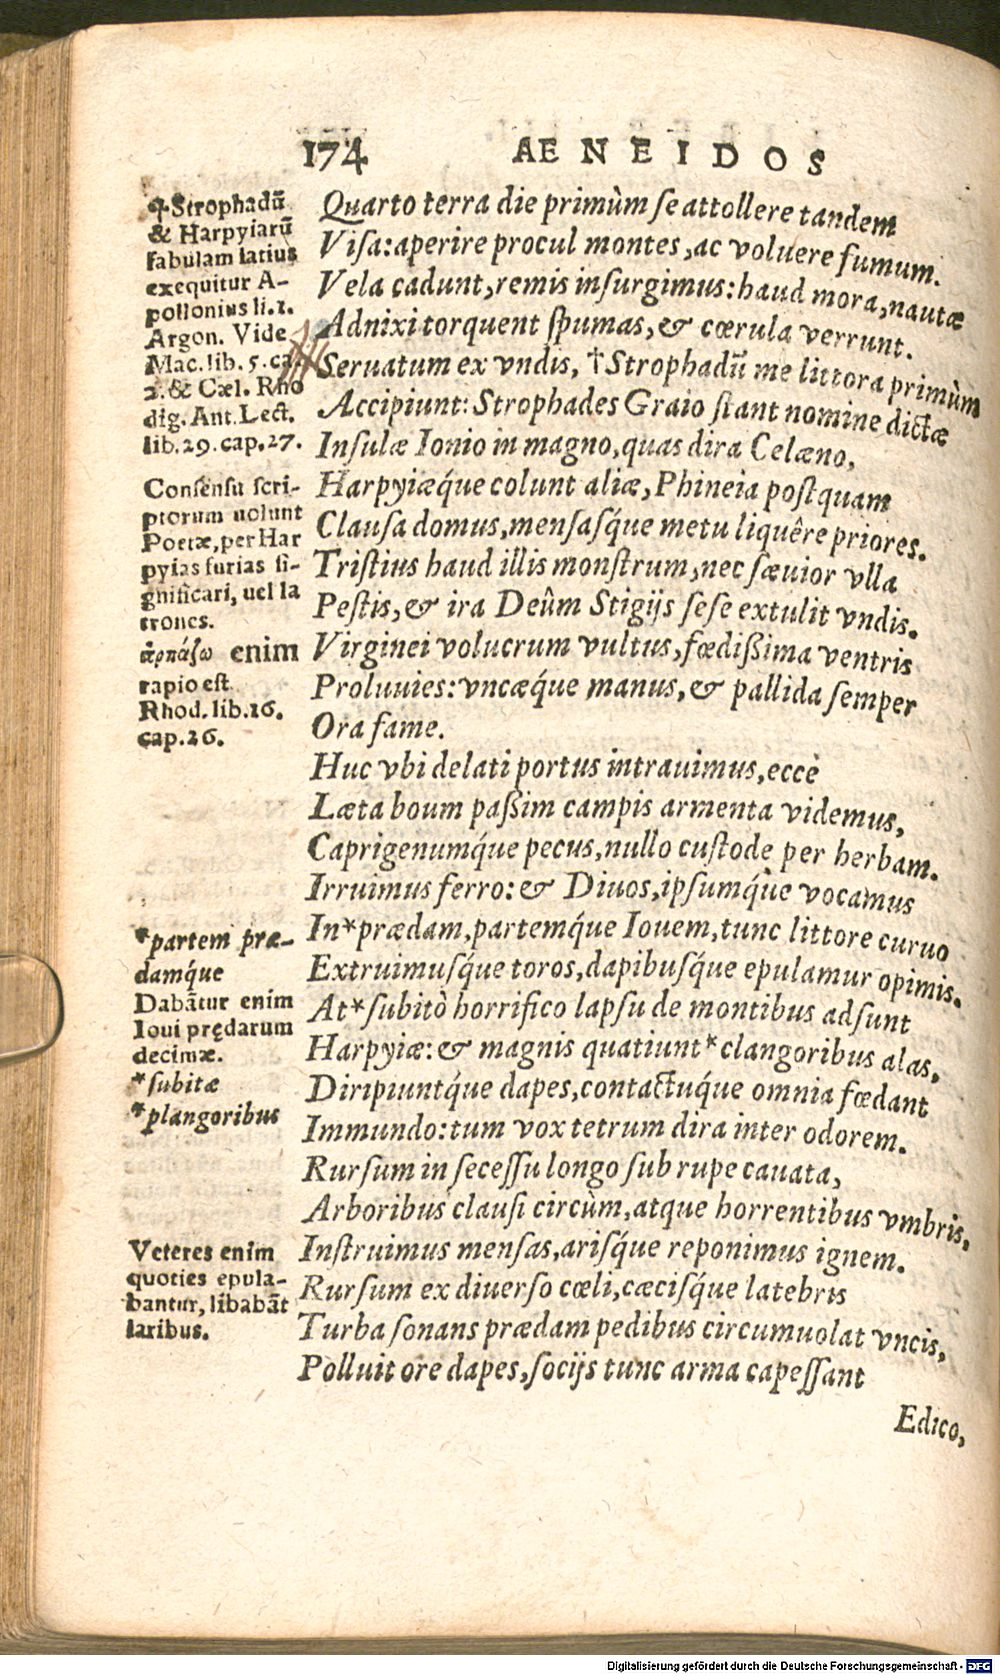 174 AENEIDOS
✝Strophadū
& Harpyiarū
fabulam latius
exequitur A-
pollonius li.2.
Argon. Vide
Mac.lib. 5. ca.
2. & Cæl. Rho
dig. Ant. Lect.
lib.29.cap.27.
Consensu scri-
ptorum uolunt
Poetæ, per Har
pyias furias si-
gnificari, uel la
trones.
ἁρπάζω enim
rapio est.
Rhod. lib.16.
cap.26.
*partem præ-
damq́ue
Dabātur enim
Ioui prędarum
decimæ.
*subitæ
*plangoribus
Veteres enim
quoties epula-
bantur, libabāt
laribus.
Quarto terra die primùm se attollere tandem
Visa: aperire procul montes, ac voluere fumum.
Vela cadunt, remis insurgimus: haud mora, nautæ
Adnixi torquent spumas, & cœrula verrunt.
Seruatum ex vndis, ✝Strophadū me littora primùm
Accipiunt: Strophades Graio stant nomine dictæ
Insulæ Ionio in magno, quas dira Celæno,
Harpyiæq́ue colunt aliæ, Phineia postquam
Clausa domus, mensasq́ue metu liquêre priores.
Tristius haud illis monstrum, nec sæuior vlla
Pestis, & ira Deûm Stigijs sese extulit vndis.
Virginei volucrum vultus, fœdißima ventris
Proluuies: vncæq́ue manus, & pallida semper
Ora fame.
Huc vbi delati portus intrauimus, eccè
Læta boum paßim campis armenta videmus,
Caprigenumq́ue pecus, nullo custode per herbam.
Irruimus ferro: & Diuos, ipsumq́ùe vocamus
In*prædam, partemq́ue Iouem, tunc littore curuo
Extruimusq́ue toros, dapibusq́ue epulamur opimis.
At*subitò horrifico lapsu de montibus adsunt
Harpyiæ: & magnis quatiunt*clangoribus alas,
Diripiuntq́ue dapes, contactuq́ue omnia fœdant
Immundo: tum vox tetrum dira inter odorem.
Rursum in secessu longo sub rupe cauata,
Arboribus clausi circùm, atque horrentibus vmbris,
Instruimus mensas, arisq́ue reponimus ignem.
Rursum ex diuerso cœli, cæcisq́ue latebris
Turba sonans prædam pedibus circumuolat vncis,
Polluit ore dapes, socijs tunc arma capessant
Edico,
Digitalisierung gefördert durch die Deutsche Forschungsgemeinschaft - DFG